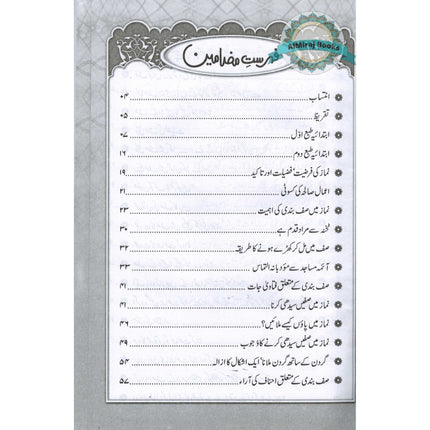 فہرستِ مضامین
AlMiraj Books
انتساب ........ ۰۴
تقریظ ........ ۰۵
ابتدائیہ طبع اوّل ........ ۰۷
ابتدائیہ طبع دوم ........ ۱۶
نماز کی فرضیت' فضیلت اور تاکید ........ ۱۹
اعمال صالحہ کی کسوٹی ........ ۲۱
نماز میں صف بندی کی اہمیت ........ ۲۳
ٹخنہ سے مراد قدم ہے ........ ۳۰
صف میں مل کر کھڑے ہونے کا طریقہ ........ ۳۲
آئمہ مساجد سے مؤدبانہ التماس ........ ۳۳
صف بندی کے متعلق فتاویٰ جات ........ ۴۱
نماز میں صفیں سیدھی کرنا ........ ۴۱
نماز میں پاؤں کیسے ملائیں؟ ........ ۴۶
نماز میں صفیں سیدھی کرنے کا وجوب ........ ۴۹
گردن کے ساتھ گردن ملانا' ایک اشکال کا ازالہ ........ ۵۴
صف بندی کے متعلق احناف کی آراء ........ ۵۷